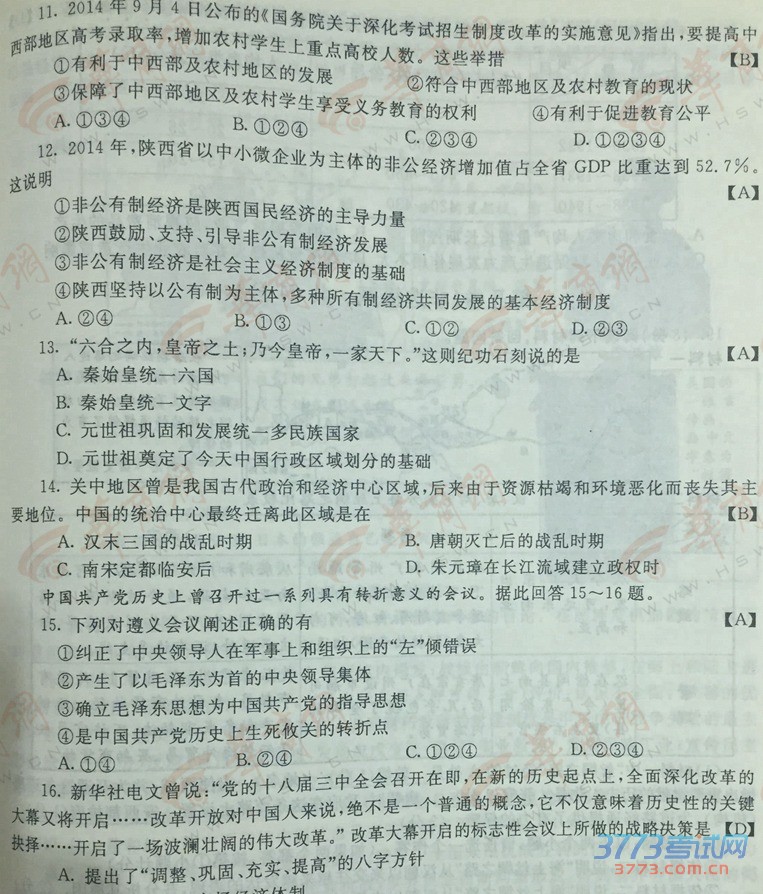 11. 2014 年 9 月 4 日公布的《国务院关于深化考试招生制度改革的实施意见》指出,要提高中
西部地区高考录取率,增加农村学生上重点高校人数。这些举措 【B】
①有利于中西部及农村地区的发展 ②符合中西部地区及农村教育的现状
③保障了中西部地区及农村学生享受义务教育的权利 ④有利于促进教育公平
A. ①③④ B. ①②④ C. ②③④ D. ①②③④
12. 2014 年,陕西省以中小微企业为主体的非公经济增加值占全省 GDP 比重达到 52.7%。
这说明 【A】
①非公有制经济是陕西国民经济的主导力量
②陕西鼓励、支持、引导非公有制经济发展
③非公有制经济是社会主义经济制度的基础
④陕西坚持以公有制为主体,多种所有制经济共同发展的基本经济制度
A. ②④ B. ①③ C. ①② D. ②③
13. “六合之内,皇帝之土;乃今皇帝,一家天下。”这则纪功石刻说的是 【A】
A. 秦始皇统一六国
B. 秦始皇统一文字
C. 元世祖巩固和发展统一多民族国家
D. 元世祖奠定了今天中国行政区域划分的基础
14. 关中地区曾是我国古代政治和经济中心区域,后来由于资源枯竭和环境恶化而丧失其主
要地位。中国的统治中心最终迁离此区域是在 【B】
A. 汉末三国的战乱时期 B. 唐朝灭亡后的战乱时期
C. 南宋定都临安后 D. 朱元璋在长江流域建立政权时
中国共产党历史上曾召开过一系列具有转折意义的会议。据此回答 15～16 题。
15. 下列对遵义会议阐述正确的有 【A】
①纠正了中央领导人在军事上和组织上的“左”倾错误
②产生了以毛泽东为首的中央领导集体
③确立毛泽东思想为中国共产党的指导思想
④是中国共产党历史上生死攸关的转折点
A. ①④ B. ②④ C. ①②④ D. ②③④
16. 新华社电文曾说:“党的十八届三中全会召开在即,在新的历史起点上,全面深化改革的
大幕又将开启……改革开放对中国人来说,绝不是一个普通的概念,它不仅意味着历史性的关键
抉择……开启了一场波澜壮阔的伟大改革。” 改革大幕开启的标志性会议上所做的战略决策是 【D】
A. 提出了“调整、巩固、充实、提高”的八字方针
3773考试网
3773.com.cn